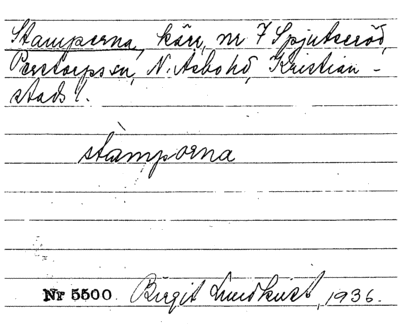 Stamporna, kärr, nr 7 Spjutseröd,
Perstorps sn, N. Åsbo hd, Kristian-
stads l.
stàmporna
Nr 5500 Birgit Lundkvist, 1936.